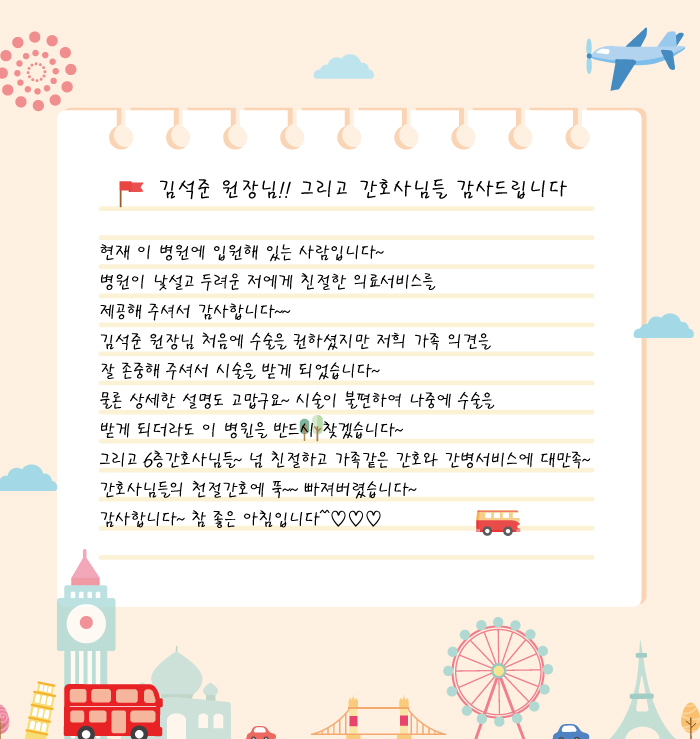 김석준 원장님!! 그리고 간호사님들 감사드립니다
현재 이 병원에 입원해 있는 사람입니다~
병원이 낯설고 두려운 저에게 친절한 의료서비스를
제공해 주셔서 감사합니다~~
김석준 원장님 처음에 수술을 권하셨지만 저희 가족 의견을
잘 존중해 주셔서 시술을 받게 되었습니다~
물론 상세한 설명도 고맙구요~ 시술이 불편하여 나중에 수술을
받게 되더라도 이 병원을 반드시 찾겠습니다~
그리고 6층간호사님들~ 넘 친절하고 가족같은 간호와 간병서비스에 대만족~
간호사님들의 천절간호에 푹~~ 빠져버렸습니다~
감사합니다~ 참 좋은 아침입니다^^♡♡♡